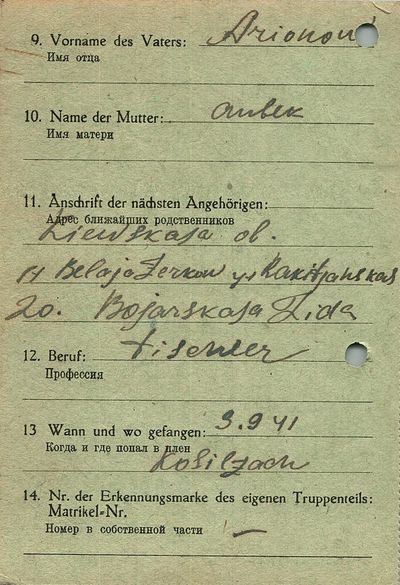 9. Vorname des Vaters:
Имя отца
10. Name der Mutter:
Имя матери
11. Anschrift der nächsten Angehörigen:
Адрес ближайших родственников
Kiewskaja ob.
Belaja Zerkow
20. Bojarskaja Lida
12. Beruf: Tischler
Профессия
13 Wann und wo gefangen: 9.9 41
Когда и где попал в плен
14. Nr. der Erkennungsmarke des eigenen Truppenteils:
Matrikel=Nr.
Номер в собственной части —